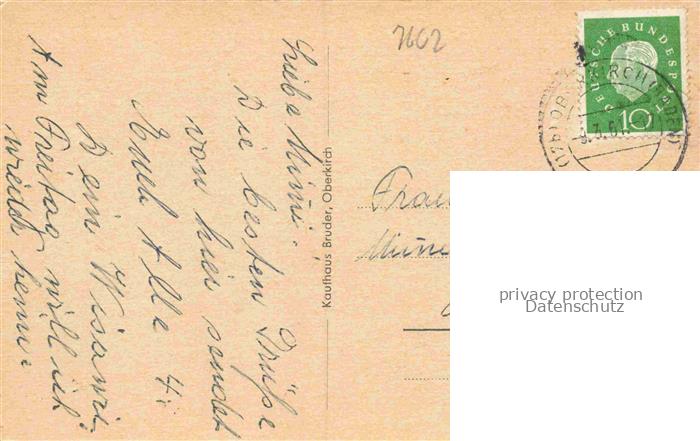 Liebe Mimi!
Die besten Grüße
von hier sendet
Euch Alle 4:
Dein
Am Freitag will ich
wieder heim.
7602
Kaufhaus Bruder, Oberkirch
DEUTSCHE BUNDESPOST
10
(17b) OBERKIRCH (BADEN)
Frau
privacy protection
Datenschutz